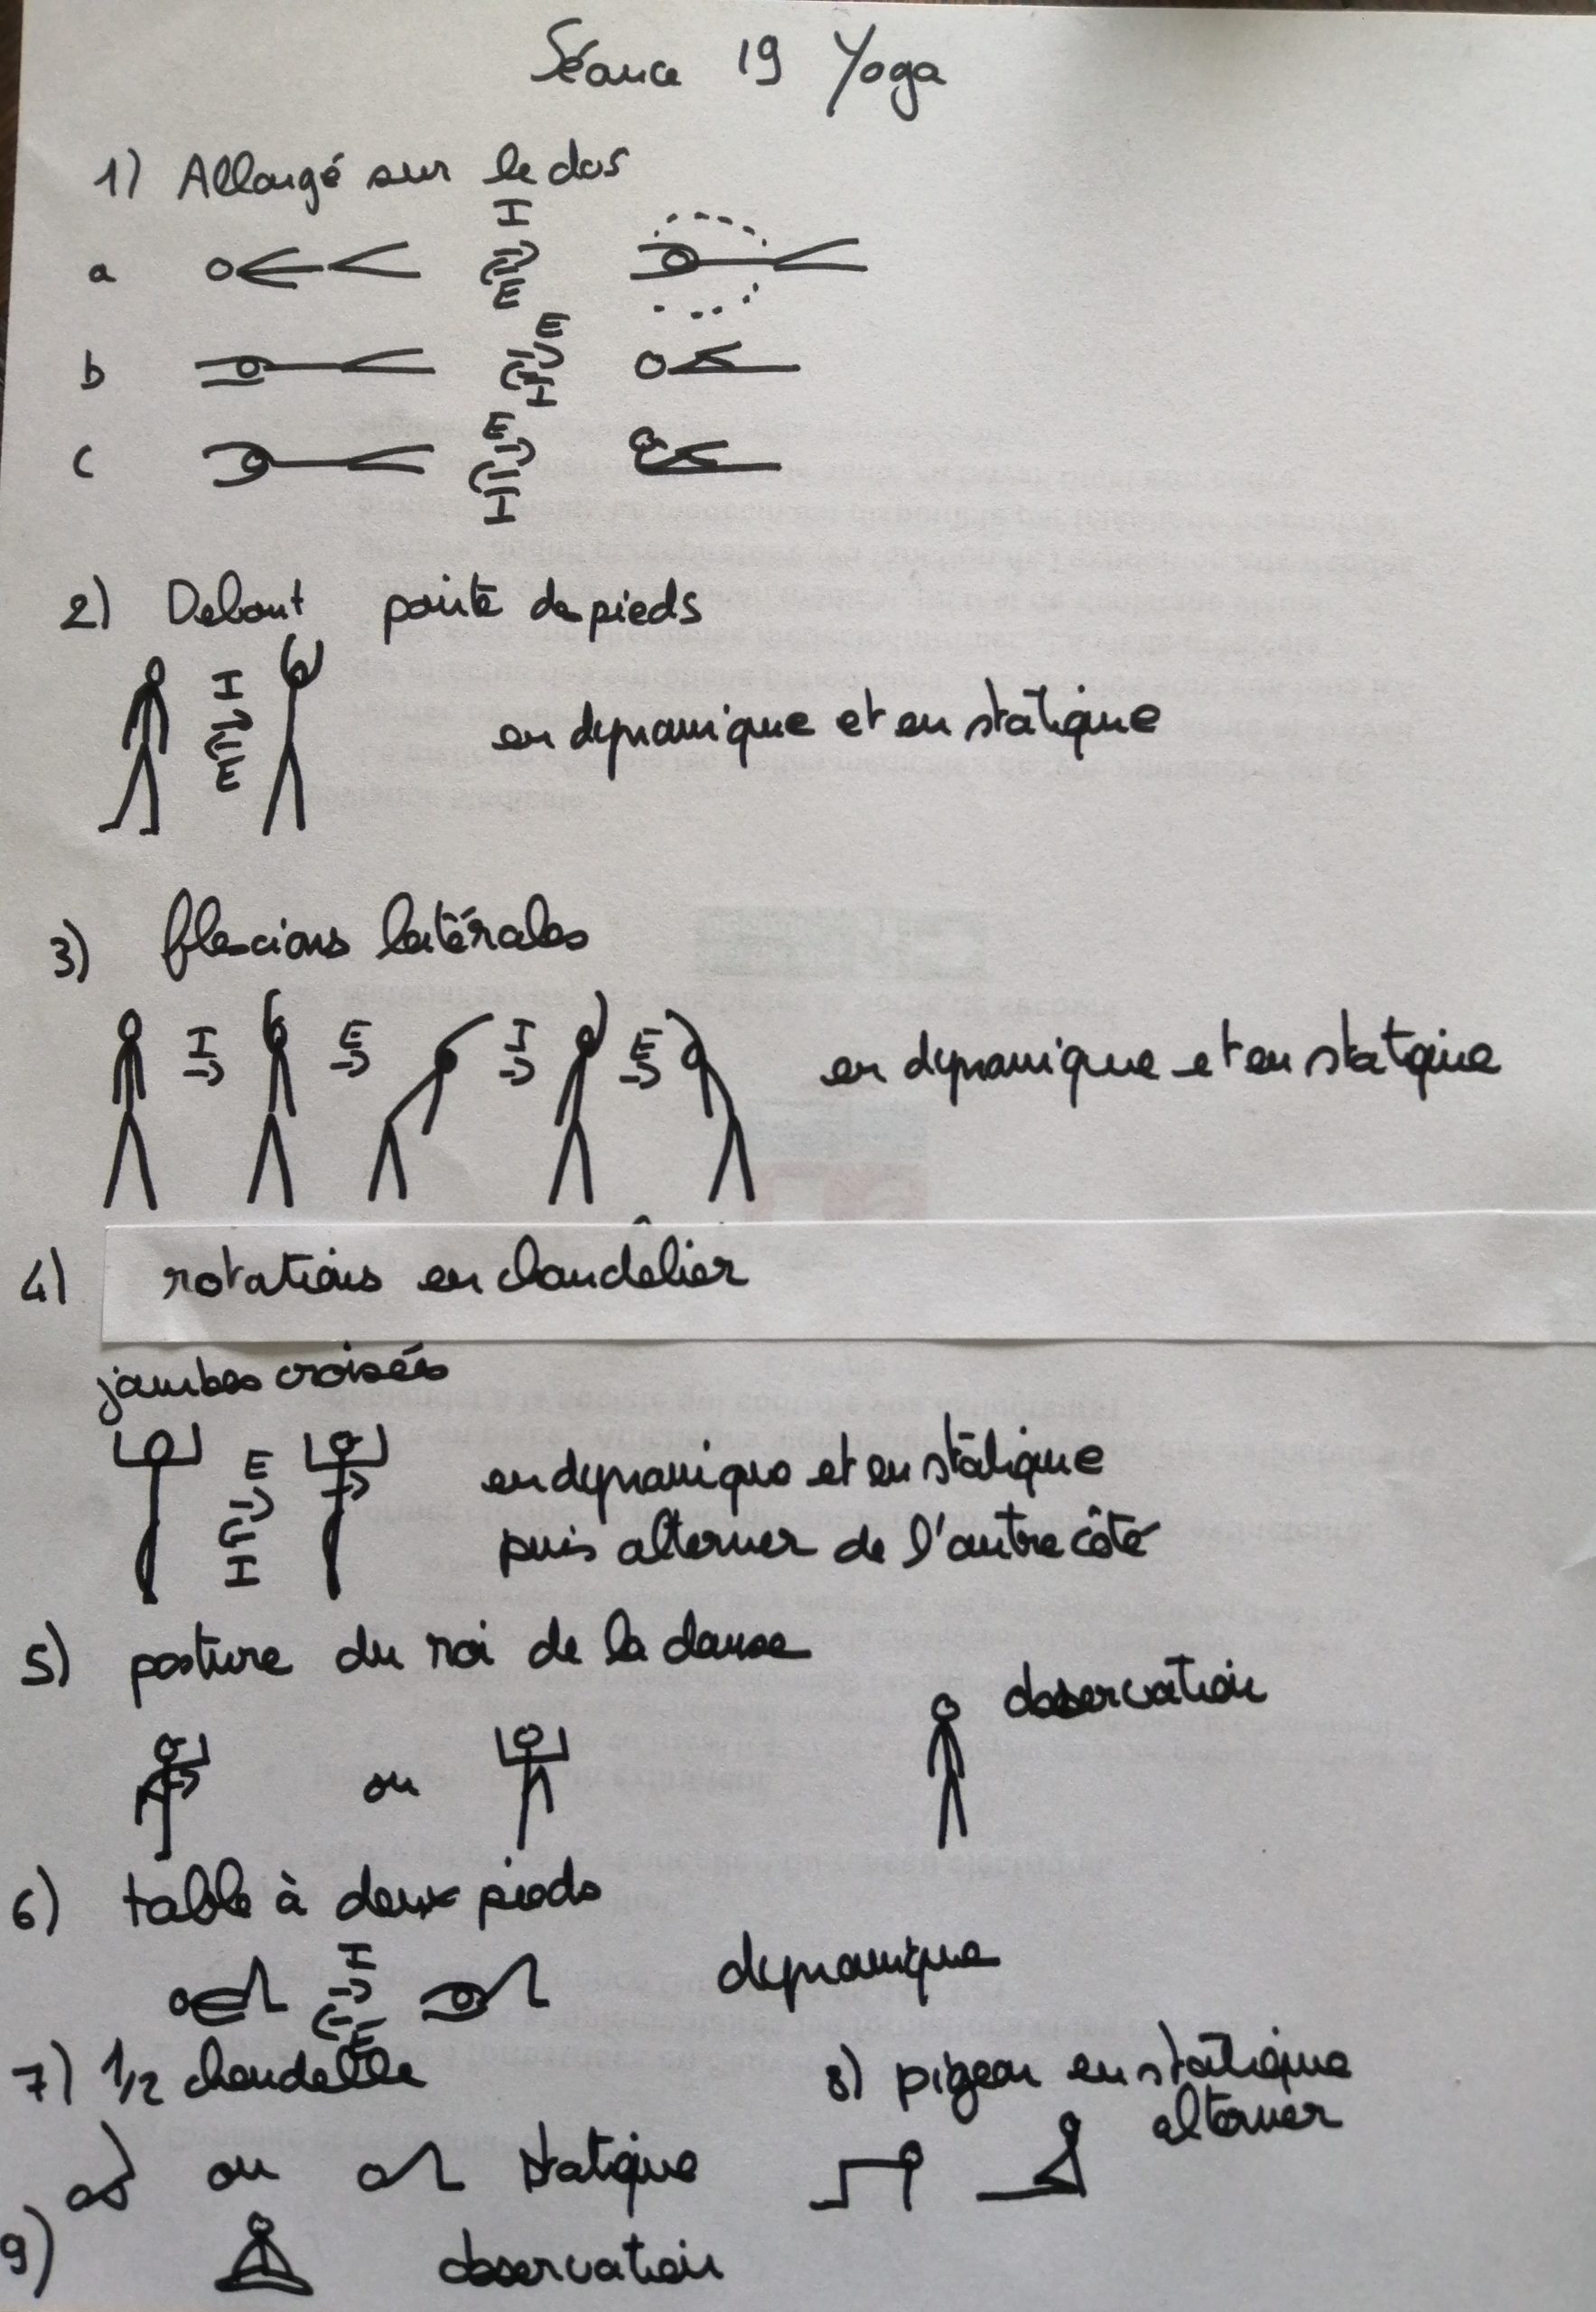 Séance 19 Yoga
1) Allongé sur le dos
a I E
b E I
c E I
2) Debout pointe de pieds
I E en dynamique et en statique
3) flexions latérales
I E I E en dynamique et en statique
4) rotations en chandelier
jambes croisées
E I en dynamique et en statique
puis alterner de l'autre côté
5) posture du roi de la danse
observation
ou
6) table à deux pieds
I E dynamique
7) 1/2 chandelle
ou statique
8) pigeon en statique
alterner
9) observation